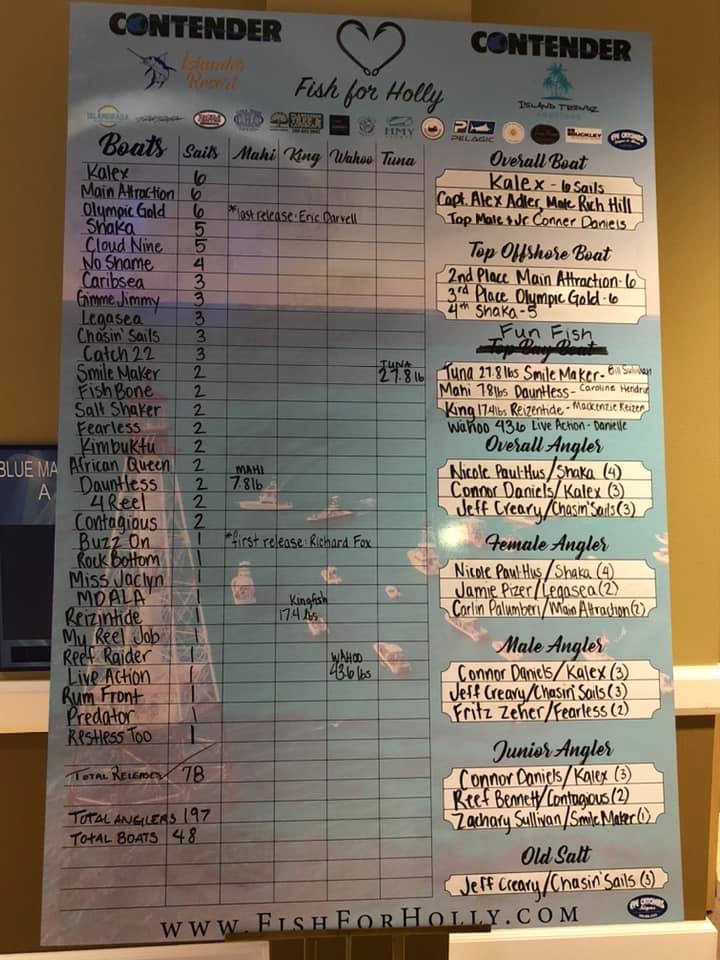 CONTENDER
CONTENDER
Islander Resort
Fish for Holly
ISLAND TRENDZ
ISLAMORADA
HMY
PELAGIC
BUCKLEY
EYE CATCHING
Boats Sails Mahi King Wahoo Tuna
Kalex 6
Main Attraction 6
Olympic Gold 6 *last release: Eric Darvell
Shaka 5
Cloud Nine 5
No Shame 4
Caribsea 3
Gimme Jimmy 3
Legasea 3
Chasin' Sails 3
Catch 22 3
Smile Maker 2 TUNA 27.8 lb
Fish Bone 2
Salt Shaker 2
Fearless 2
Kimbuktu 2
African Queen 2
Dauntless 2 MAHI 7.8 lb
4 Reel 2
Contagious 2
Buzz On 1 *first release: Richard Fox
Rock Bottom 1
Miss Jaclyn 1
MDALA 1
Reizintide 1 Kingfish 17.4 lbs
My Reel Job 1
Reef Raider 1
Live Action 1 WAHOO 43.6 lbs
Rum Front 1
Predator 1
Restless Too 1
TOTAL RELEASES 78
TOTAL ANGLERS 197
TOTAL BOATS 48
Overall Boat
Kalex - 6 Sails
Capt. Alex Adler, Mate Rich Hill
Top Male & Jr. Conner Daniels
Top Offshore Boat
2nd Place Main Attraction - 6
3rd Place Olympic Gold - 6
4th Shaka - 5
Fun Fish
Top Bay Boat
Tuna 27.8 lbs Smile Maker - Bill Sullivan
Mahi 7.8 lbs Dauntless - Caroline Hendrix
King 17.4 lbs Reizentide - Mackenzie Reizen
Wahoo 43.6 Live Action - Danielle
Overall Angler
Nicole Paul-Hus/Shaka (4)
Connor Daniels/Kalex (3)
Jeff Creary/Chasin' Sails (3)
Female Angler
Nicole Paul-Hus/Shaka (4)
Jamie Pizer/Legasea (2)
Carlin Palumberi/Main Attraction (2)
Male Angler
Connor Daniels/Kalex (3)
Jeff Creary/Chasin' Sails (3)
Fritz Zeher/Fearless (2)
Junior Angler
Connor Daniels/Kalex (3)
Reef Bennett/Contagious (2)
Zachary Sullivan/Smile Maker (1)
Old Salt
Jeff Creary/Chasin' Sails (3)
EYE CATCHING
www.FishForHolly.com
BLUE MA
A